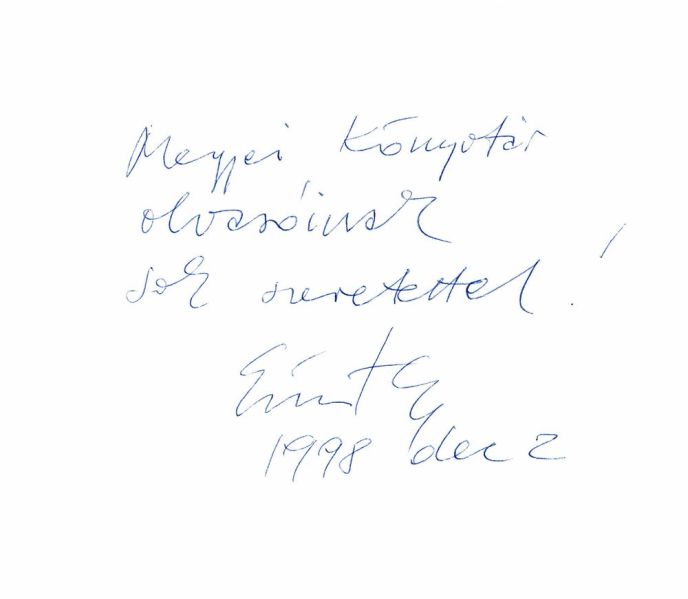 Megyei Könyvtár
olvasóinak
sok szeretettel!
1998 dec 2